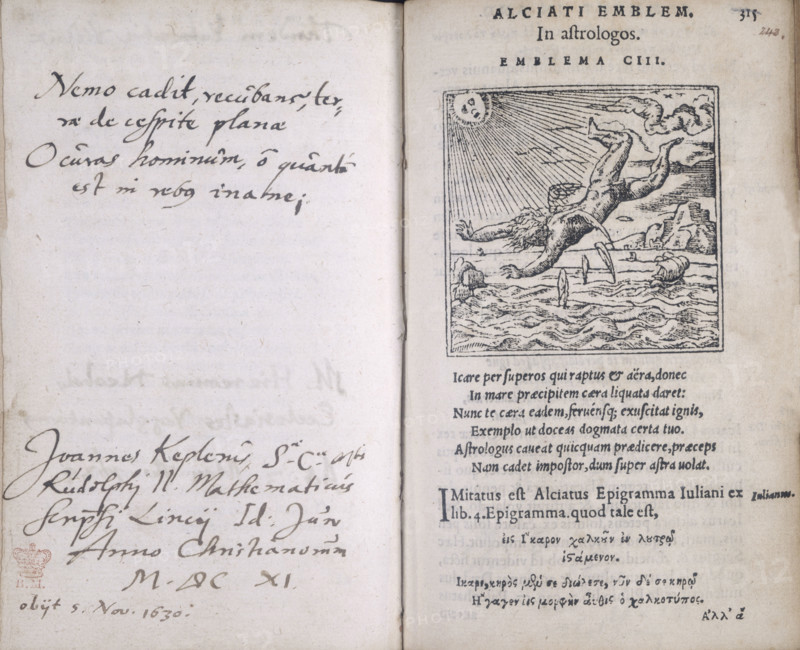 Nemo cadit, recubans, ter,,
ræ de cespite planæ
O curas hominum, ô quantū
est in rebus inane;
Joannes Keplerus S.æ C.æ Mtis
Rudolphi II. Mathematicus
scripsi Lincij Id: Jun
Anno Christianorum
M. DC XI.
obijt 5. Nov. 1630.
ALCIATI EMBLEM. 315
242.
In astrologos.
EMBLEMA CIII.
Icare per superos qui raptus & aëra, donec
In mare præcipitem cæra liquata daret:
Nunc te cæra eadem, feruensq; exuscitat ignis,
Exemplo ut doceas dogmata certa tuo.
Astrologus caueat quicquam prædicere, præceps
Nam cadet impostor, dum super astra uolat.
IMitatus est Alciatus Epigramma Iuliani ex Iulianus.
lib. 4. Epigramma. quod tale est,
εἰς Ἴκαρον χαλκοῦν ἐν λουτρῷ
ἱστάμενον.
Ἴκαρε, κηρὸς μέν σε διώλεσε, νῦν δέ σε κηρῷ
Ἤγαγεν εἰς μορφὴν αὖθις ὁ χαλκοτύπος.
Ἀλλ' ἃ